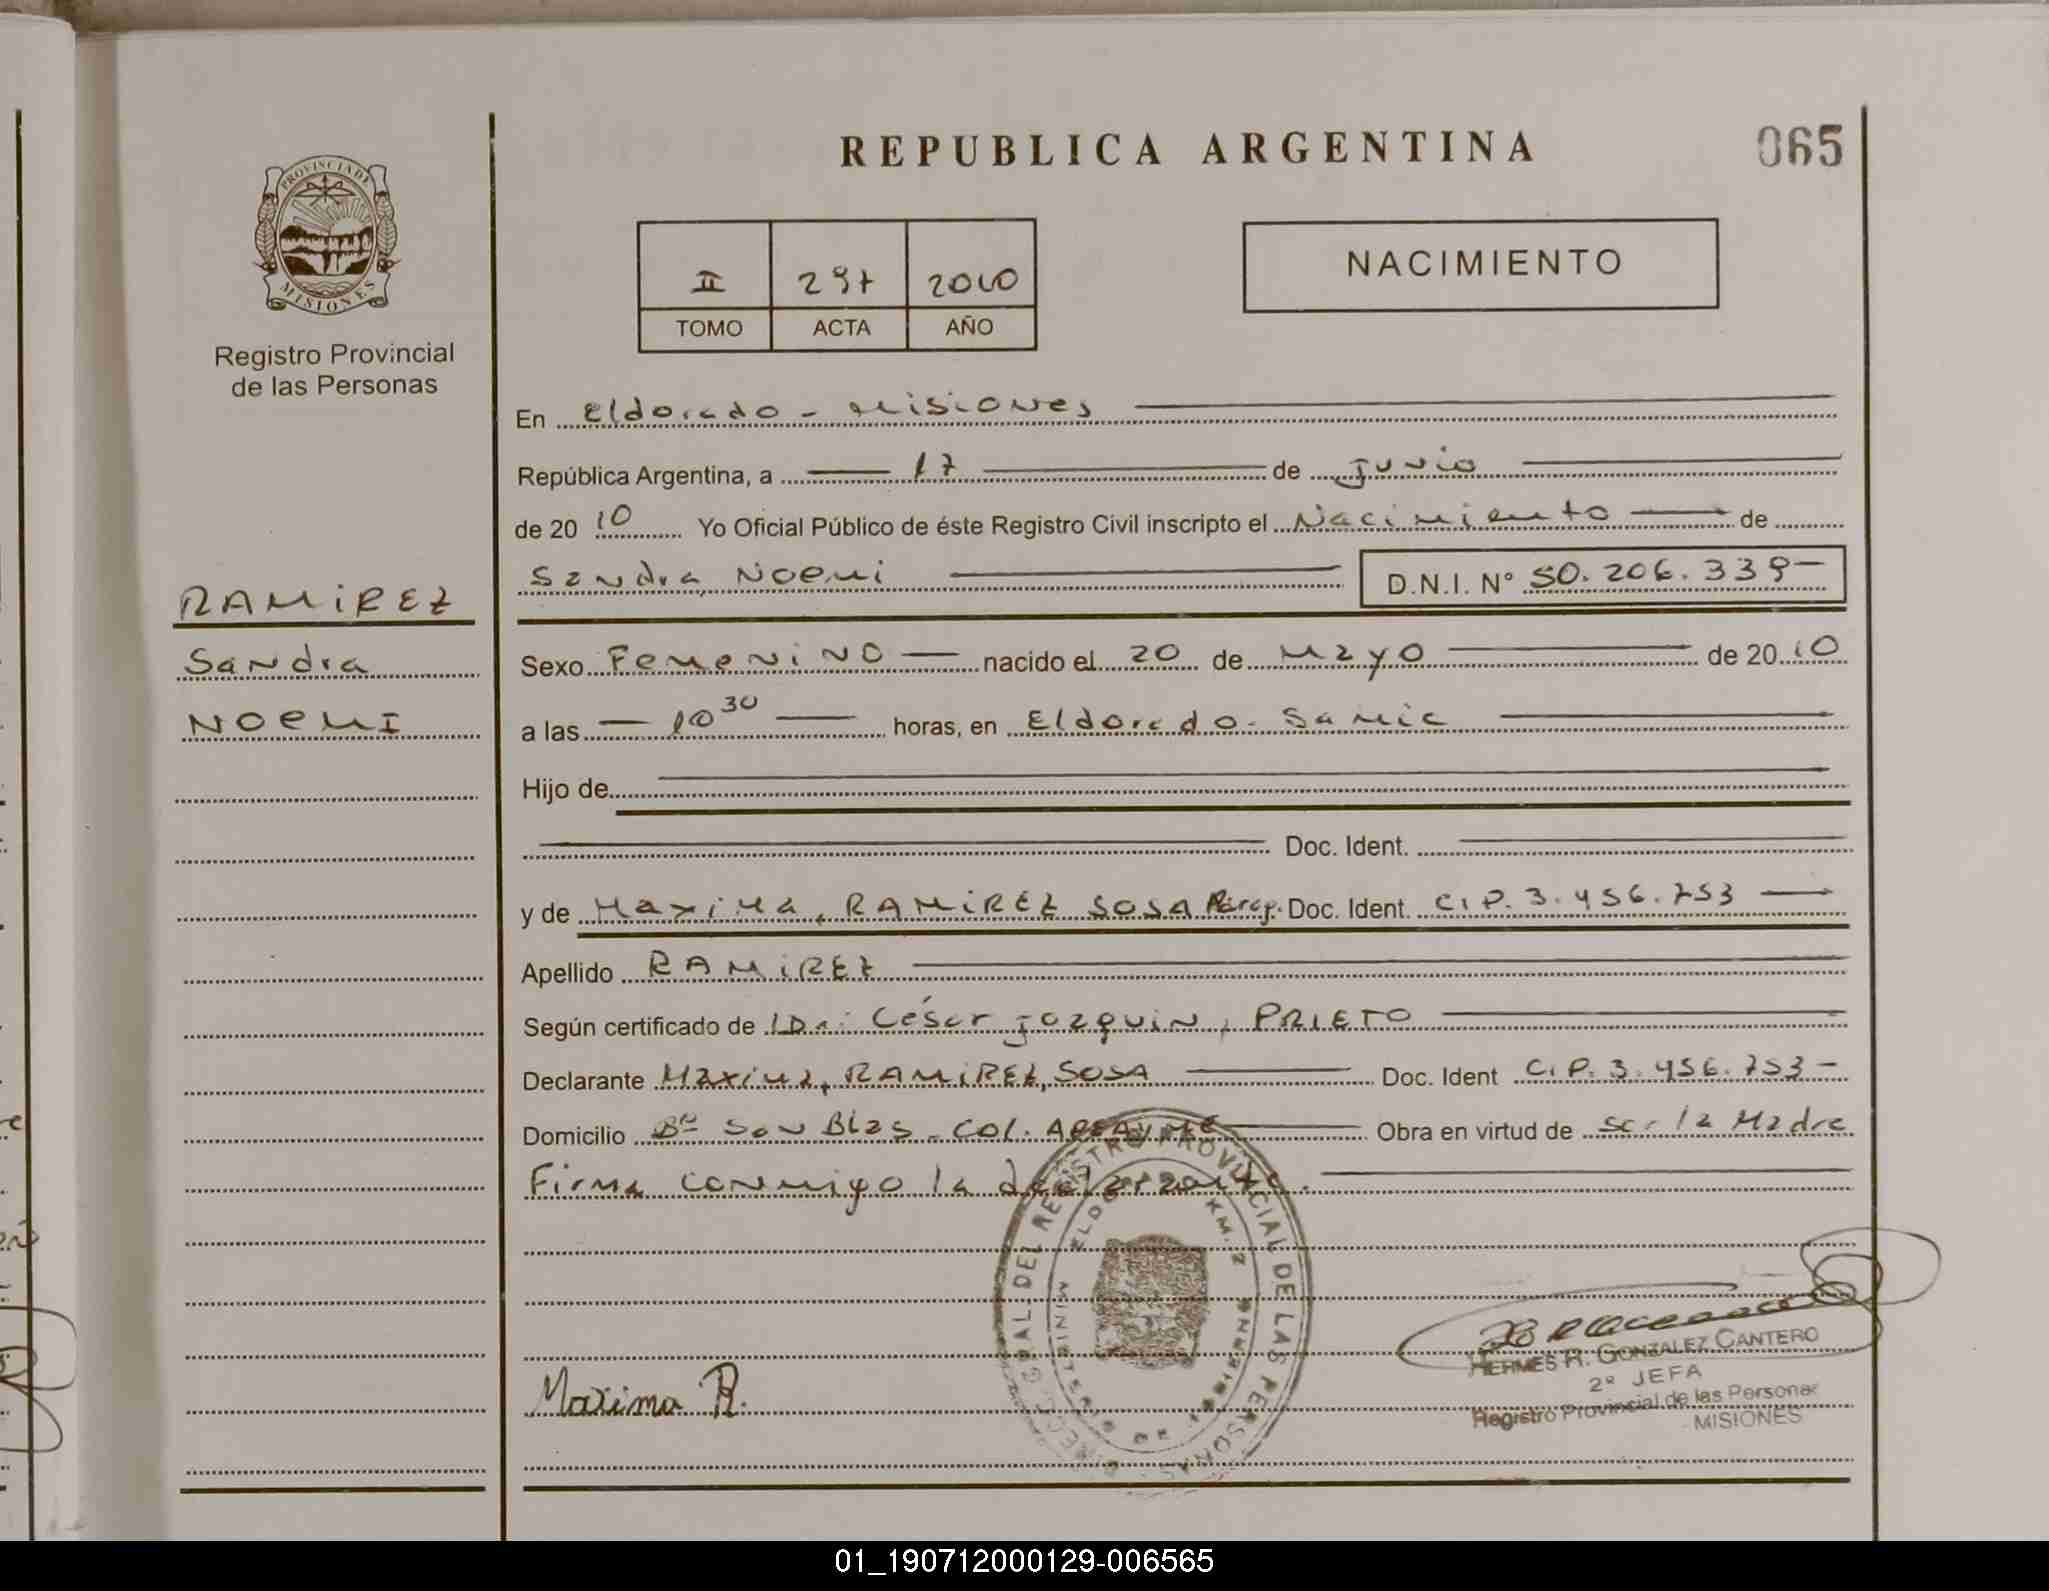 REPUBLICA ARGENTINA
065
PROVINCIA DE
MISIONES
Registro Provincial
de las Personas
II 297 2010
TOMO ACTA AÑO
NACIMIENTO
En Eldorado - Misiones
República Argentina, a 17 de junio
de 2010 Yo Oficial Público de éste Registro Civil inscripto el Nacimiento de
Sandra, Noemi D.N.I. Nº 50.206.339
RAMIREZ
Sandra
NOEMI
Sexo Femenino nacido el 20 de Mayo de 2010
a las 10 30 horas, en Eldorado - Samic
Hijo de
Doc. Ident.
y de Maxima, RAMIREZ SOSA Parag. Doc. Ident. C.I.P. 3.456.753
Apellido RAMIREZ
Según certificado de Dr: César Joaquin, PRIETO
Declarante Maxima, RAMIREZ, SOSA Doc. Ident C.I.P. 3.456.753
Domicilio Bº San Blas - Col. Obra en virtud de ser la Madre
Firma conmigo la declarante.
REGISTRO PROVINCIAL DE LAS PERSONAS
KM. 2
Maxima R.
HERMES R. GONZALEZ CANTERO
2º JEFA
Registro Provincial de las Personas
MISIONES
01_190712000129-006565